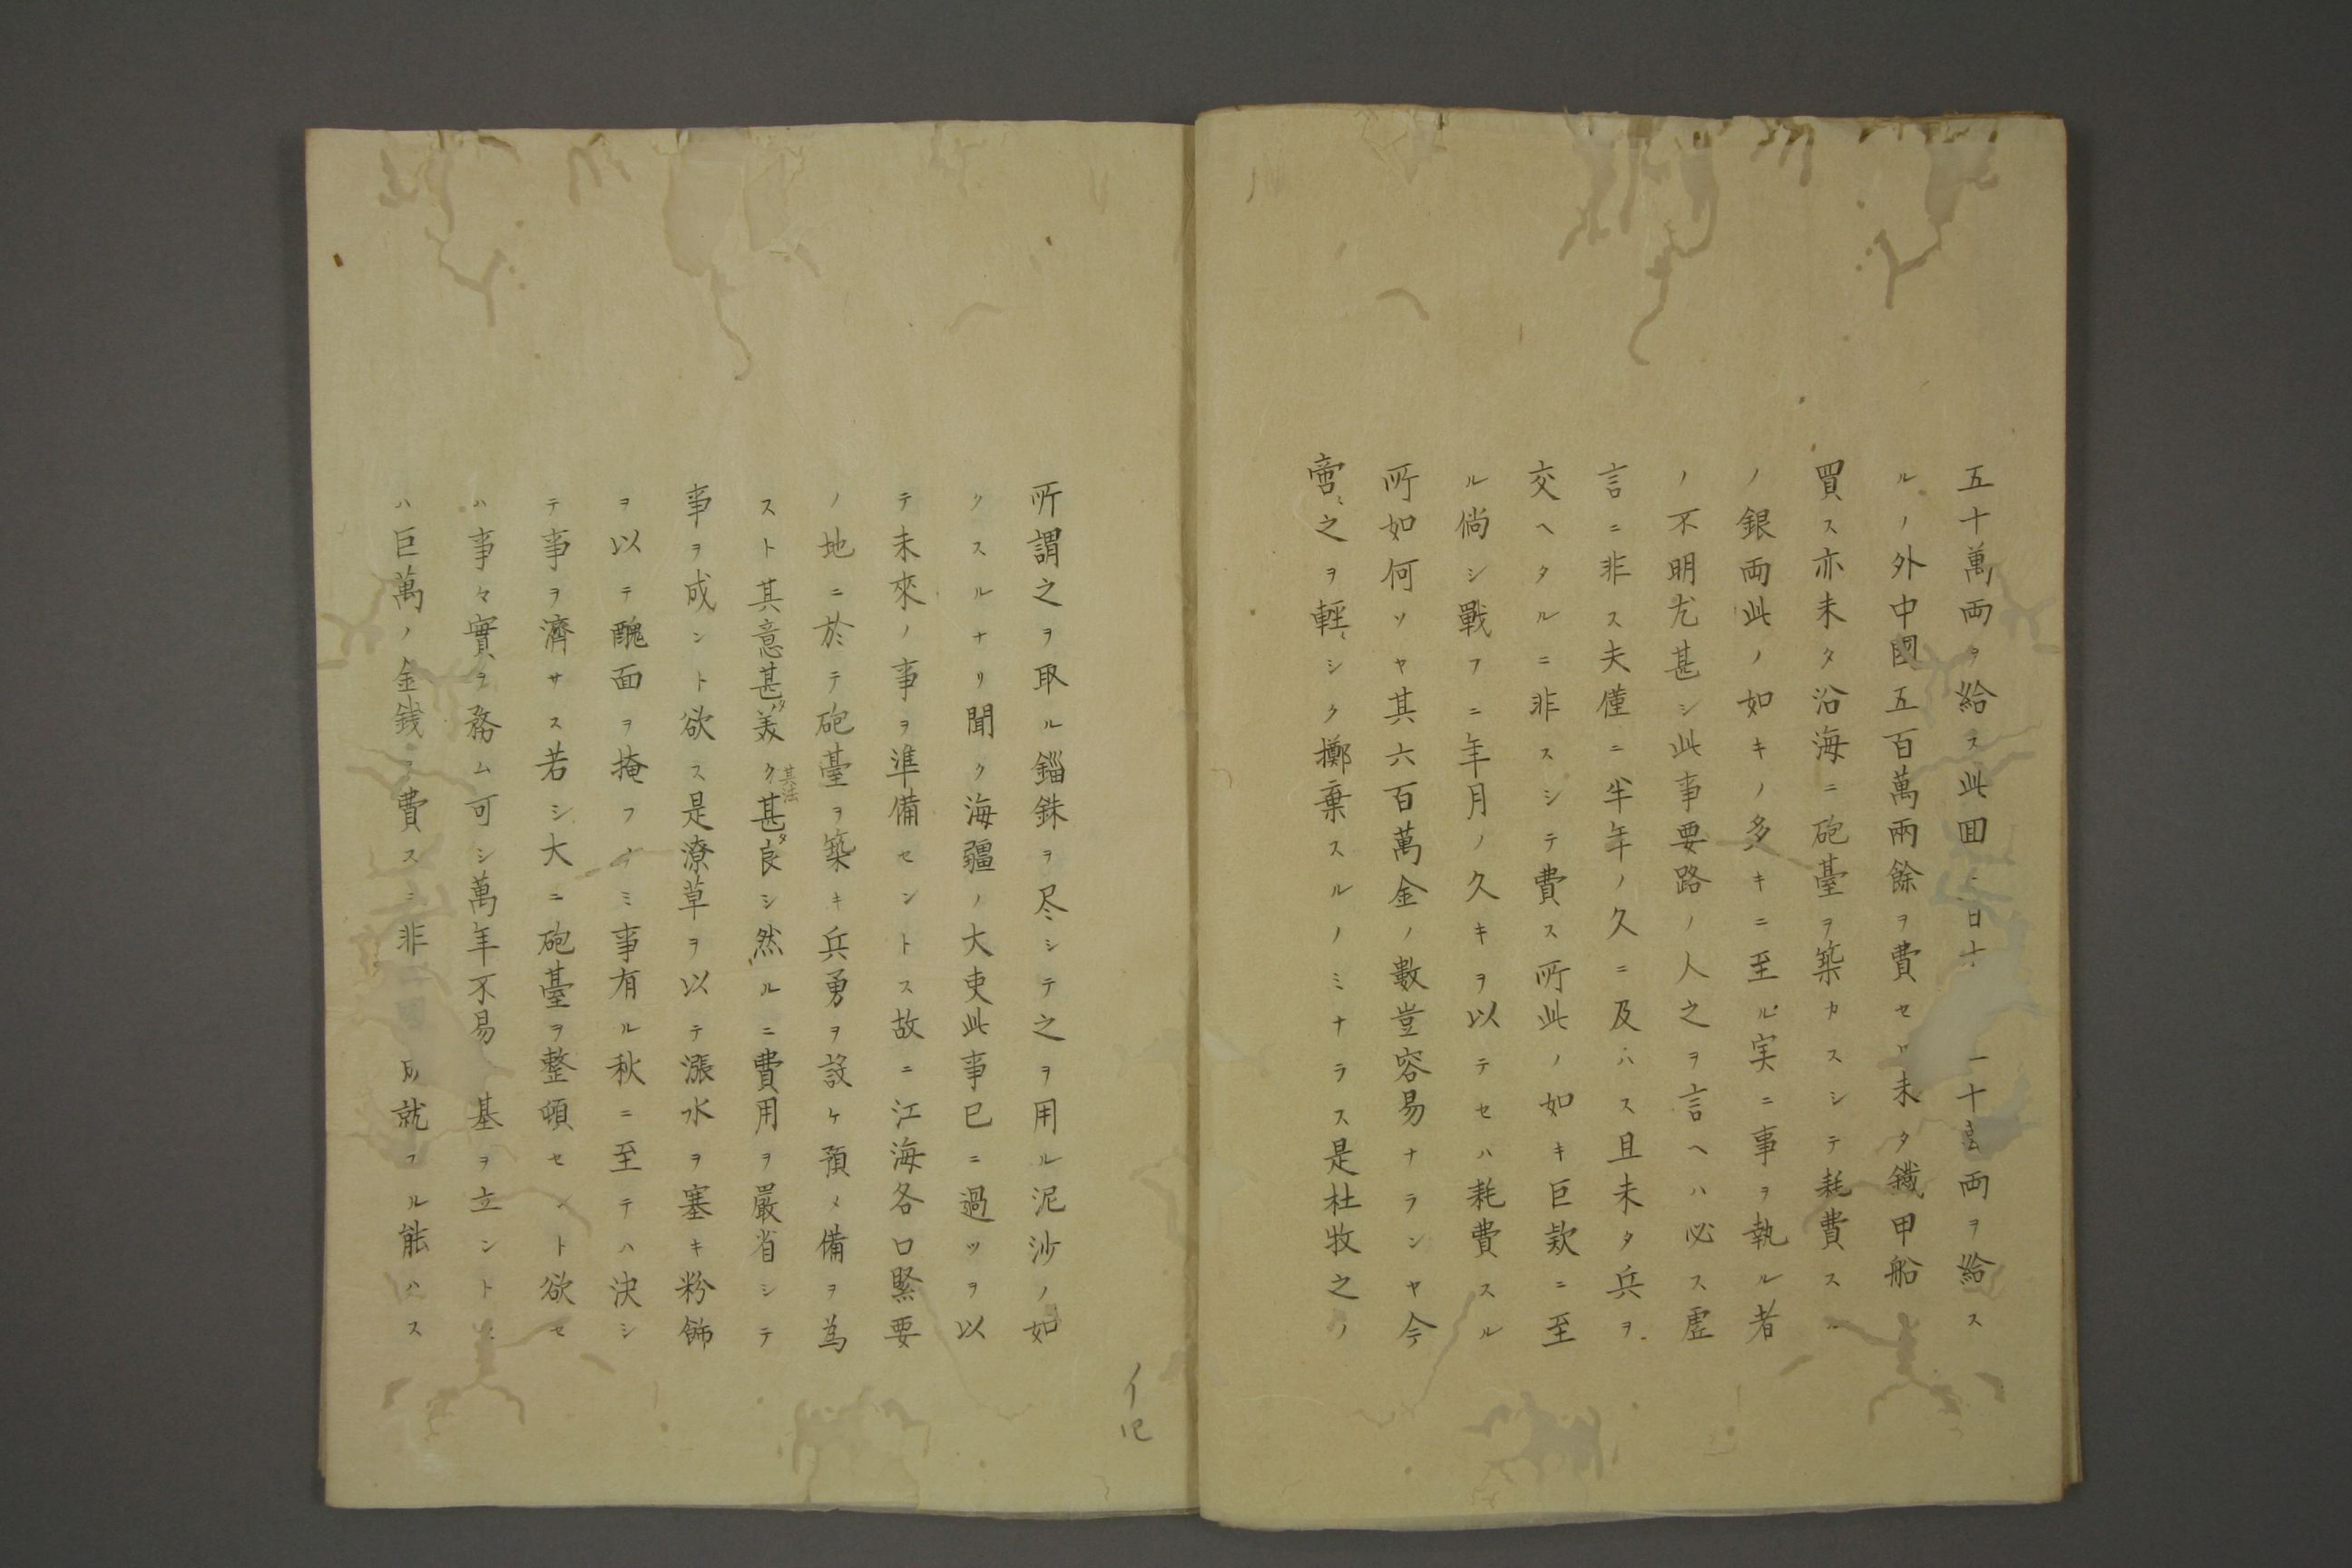 五十萬両ヲ給ス此囬ニ日 一十 両ヲ給ス
ルノ外中國五百萬兩餘ヲ費セリ未タ鐵甲船
買ス亦未タ沿海ニ砲臺ヲ築カスシテ耗費ス
ノ銀両此ノ如キノ多キニ至ル実ニ事ヲ執ル者
ノ不明尤甚シ此事要路ノ人之ヲ言ヘハ必ス虚
言ニ非ス夫僅ニ半年ノ久ニ及ハス且未タ兵ヲ
交ヘタルニ非スシテ費ス所此ノ如キ巨款ニ至
ル倘シ戰フニ年月ノ久キヲ以テセハ耗費スル
所如何ソヤ其六百萬金ノ數豈容易ナランヤ今
啻ニ之ヲ輕〻シク擲棄スルノミナラス是杜牧之ノ
所謂之ヲ取ル錙銖ヲ尽シテ之ヲ用ル泥沙ノ如
クスルナリ聞ク海疆ノ大吏此事已ニ過ツヲ以
テ未來ノ事ヲ準備セントス故ニ江海各口緊要
ノ地ニ於テ砲臺ヲ築キ兵勇ヲ設ケ預メ備ヲ為
スト其意甚タ美ク其法甚タ良シ然ルニ費用ヲ嚴省シテ
事ヲ成ント欲ス是潦草ヲ以テ漲水ヲ塞キ粉飾
ヲ以テ醜面ヲ掩フノミ事有ル秋ニ至テハ決シ
テ事ヲ濟サス若シ大ニ砲臺ヲ整頓セント欲セ
ハ事々實ヲ務ム可シ萬年不易 基ヲ立ント
ハ巨萬ノ金銭ヲ費スニ非 成就フル能ハス